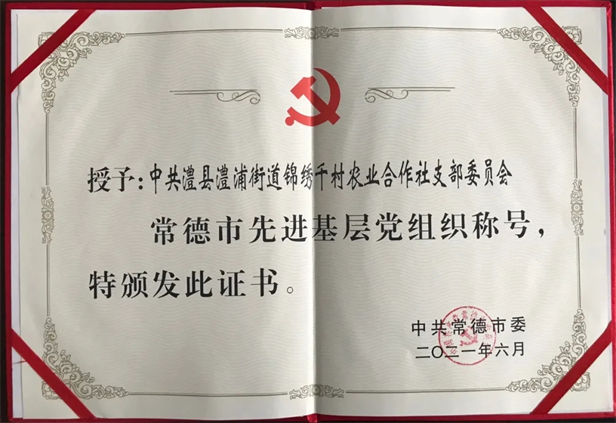 授予:中共澧县澧浦街道锦绣千村农业合作社支部委员会
常德市先进基层党组织称号，
特颁发此证书。
中共常德市委
二〇二一年六月